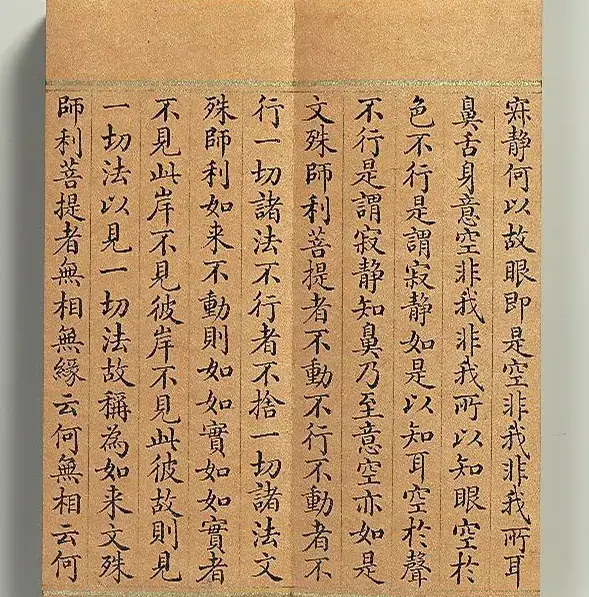 寂静何以故眼即是空非我非我所耳
鼻舌身意空非我非我所以知眼空於
色不行是謂寂静如是以知耳空於聲
不行是謂寂静知鼻乃至意空亦如是
文殊師利菩提者不動不行不動者不
行一切諸法不行者不捨一切諸法文
殊師利如来不動則如如實如如實者
不見此岸不見彼岸不見此彼故則見
一切法以見一切法故稱為如来文殊
師利菩提者無相無緣云何無相云何